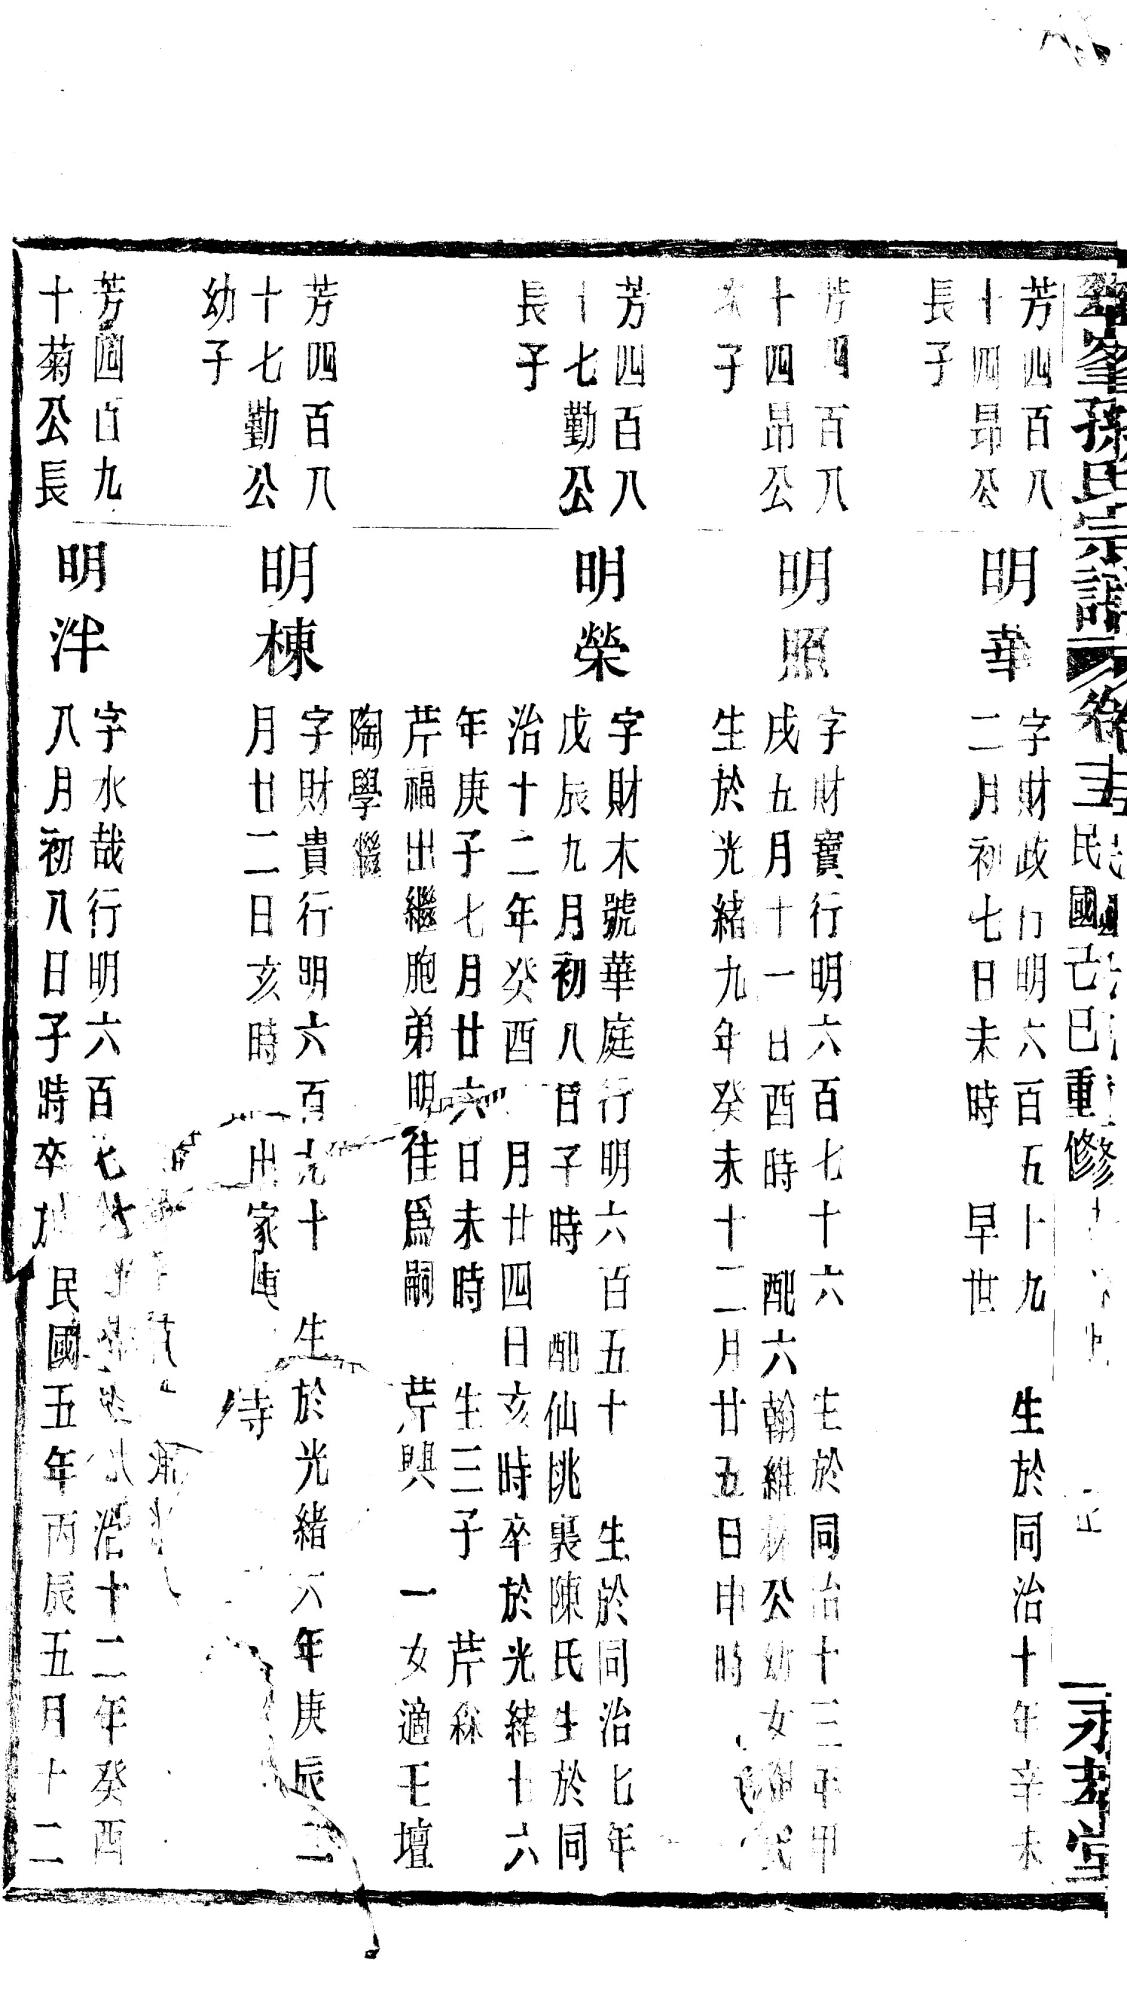 孫氏宗譜
卷
民國己巳重修
芳四百八
十四昂公
長子
明華
字財政行明六百五十九 生於同治十年辛未
二月初七日未時 早世
芳四百八
十四昂公
子
明照
字財寶行明六百七十六 生於同治十三年甲
戌五月十一日酉時 配六翰維 公幼女 氏
生於光緒九年癸未十二月廿五日申時
芳四百八
十七勤公
長子
明榮
字財木號華庭行明六百五十 生於同治七年
戊辰九月初八日子時 配仙姚裏陳氏生於同
治十二年癸酉 月廿四日亥時卒於光緒十六
年庚子七月廿六日未時 生三子 芹森
芹福出繼胞弟明 為嗣 芹興 一女適王壇
陶學繼
芳四百八
十七勤公
幼子
明棟
字財貴行明六百 十 生於光緒六年庚辰二
月廿二日亥時 出家 寺
芳四百九
十菊公長
明泮
字水哉行明六百七 治十二年癸酉
八月初八日子時卒於民國五年丙辰五月十二